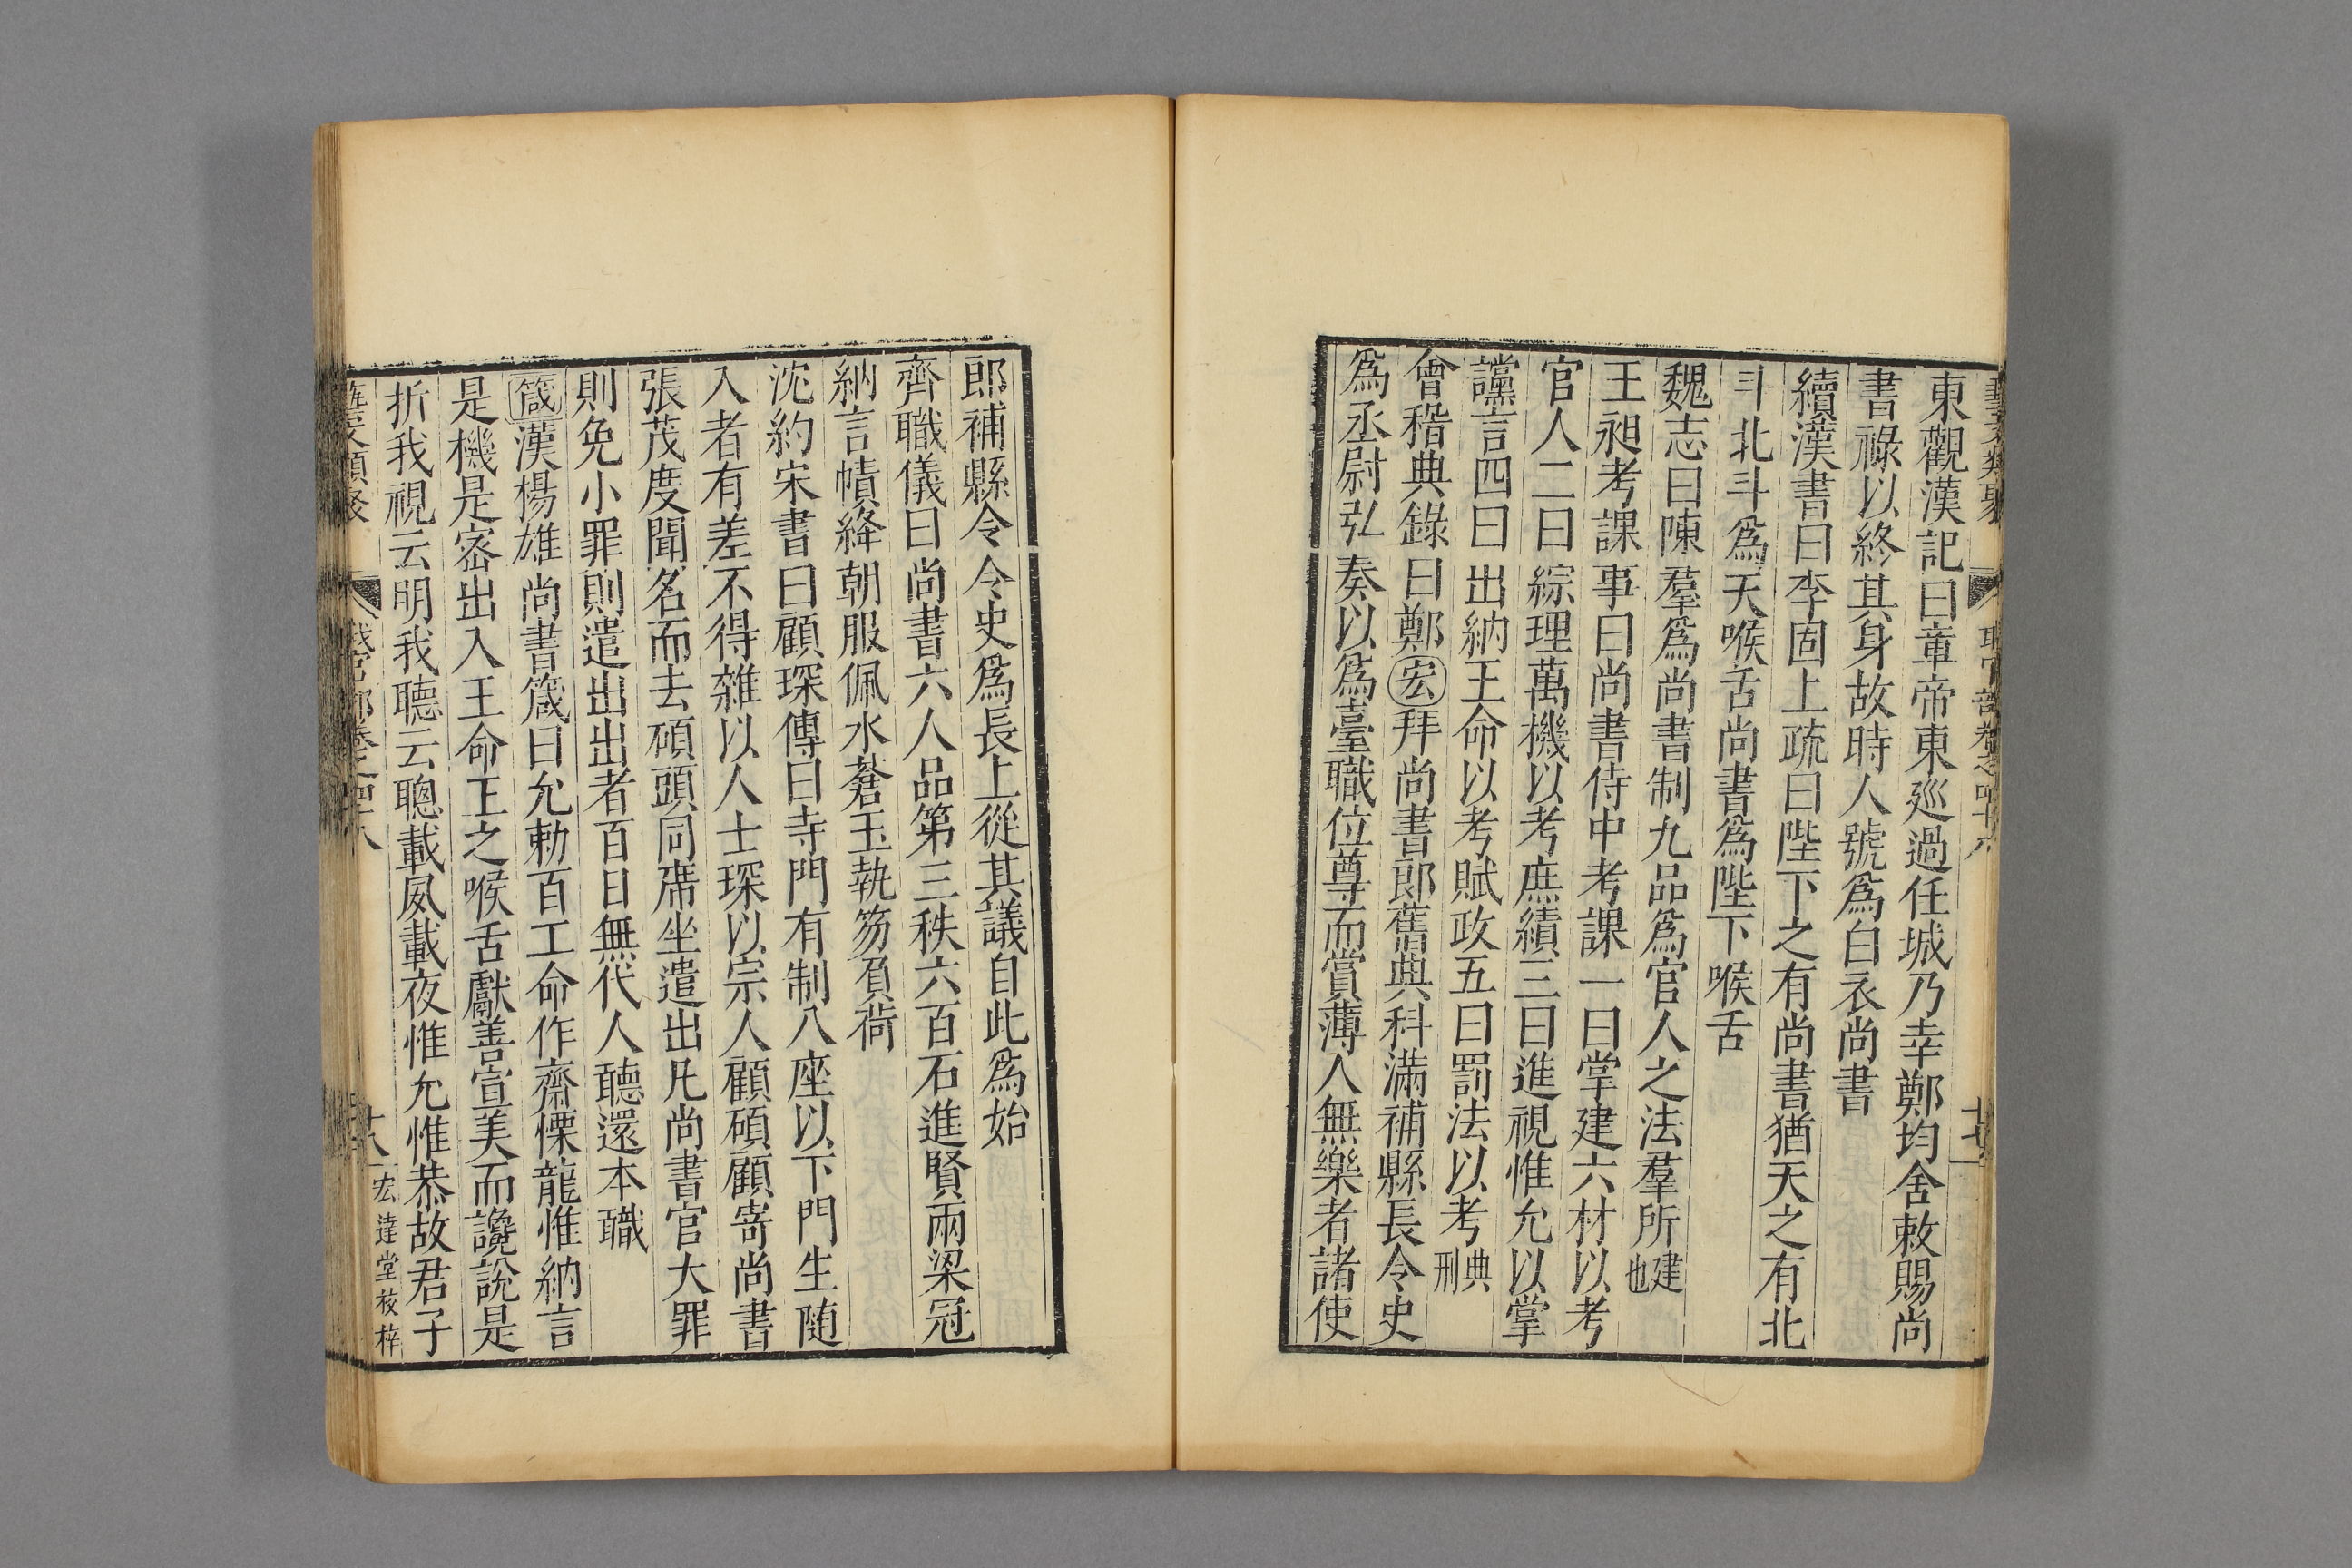 東觀漢記曰章帝東廵過任城乃幸鄭均舍敕賜尚
書祿以終其身故時人號爲白衣尚書
續漢書曰李固上疏曰陛下之有尚書猶天之有北
斗北斗爲天喉舌尚書爲陛下喉舌
魏志曰陳羣爲尚書制九品爲官人之法羣所建也
王昶考課事曰尚書侍中考課一曰掌建六材以考
官人二曰綜理萬機以考庶績三曰進視惟允以掌
讜言四曰出納王命以考賦政五曰罰法以考典刑
會稽典錄曰鄭宏拜尚書郎舊典科滿補縣長令史
爲丞尉弘奏以爲臺職位尊而賞薄人無樂者諸使
郎補縣令令史爲長上從其議自此爲始
齊職儀曰尚書六人品第三秩六百石進賢兩梁冠
納言幘絳朝服佩水蒼玉執笏負荷
沈約宋書曰顧琛傳曰寺門有制八座以下門生随
入者有差不得雜以人士琛以宗人顧碩顧寄尚書
張茂度聞名而去碩頭同席坐遣出凡尚書官大罪
則免小罪則遣出出者百日無代人聽還本職
箴漢楊雄尚書箴曰允勅百工命作齋慄龍惟納言
是機是宻出入王命王之喉舌獻善宣美而讒說是
折我視云明我聽云聰載夙載夜惟允惟恭故君子
宏達堂校梓